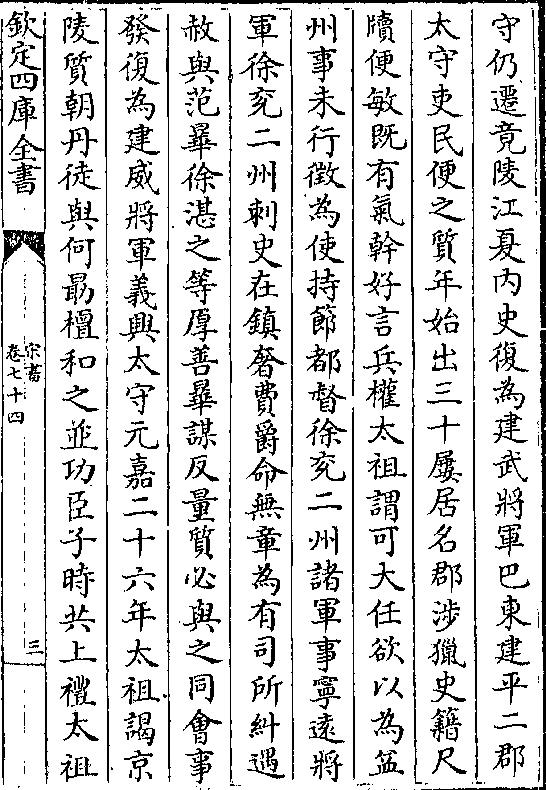 守仍遷竟陵江夏内史復為建武將軍巴東建平二郡
太守吏民便之質年始出三十屢居名郡涉獵史籍尺
牘便敏既有氣幹好言兵權太祖謂可大任欲以為益
州事未行徵為使持節都督徐兖二州諸軍事寧遠將
軍徐兖二州刺史在鎮奢費爵命無章為有司所糾遇
赦與范曅徐湛之等厚善曅謀反量質必與之同會事
發復為建威將軍義興太守元嘉二十六年太祖謁京
陵質朝丹徒與何勗檀和之並功臣子時共上禮太祖
欽定四庫全書
宋書
卷七十四
三